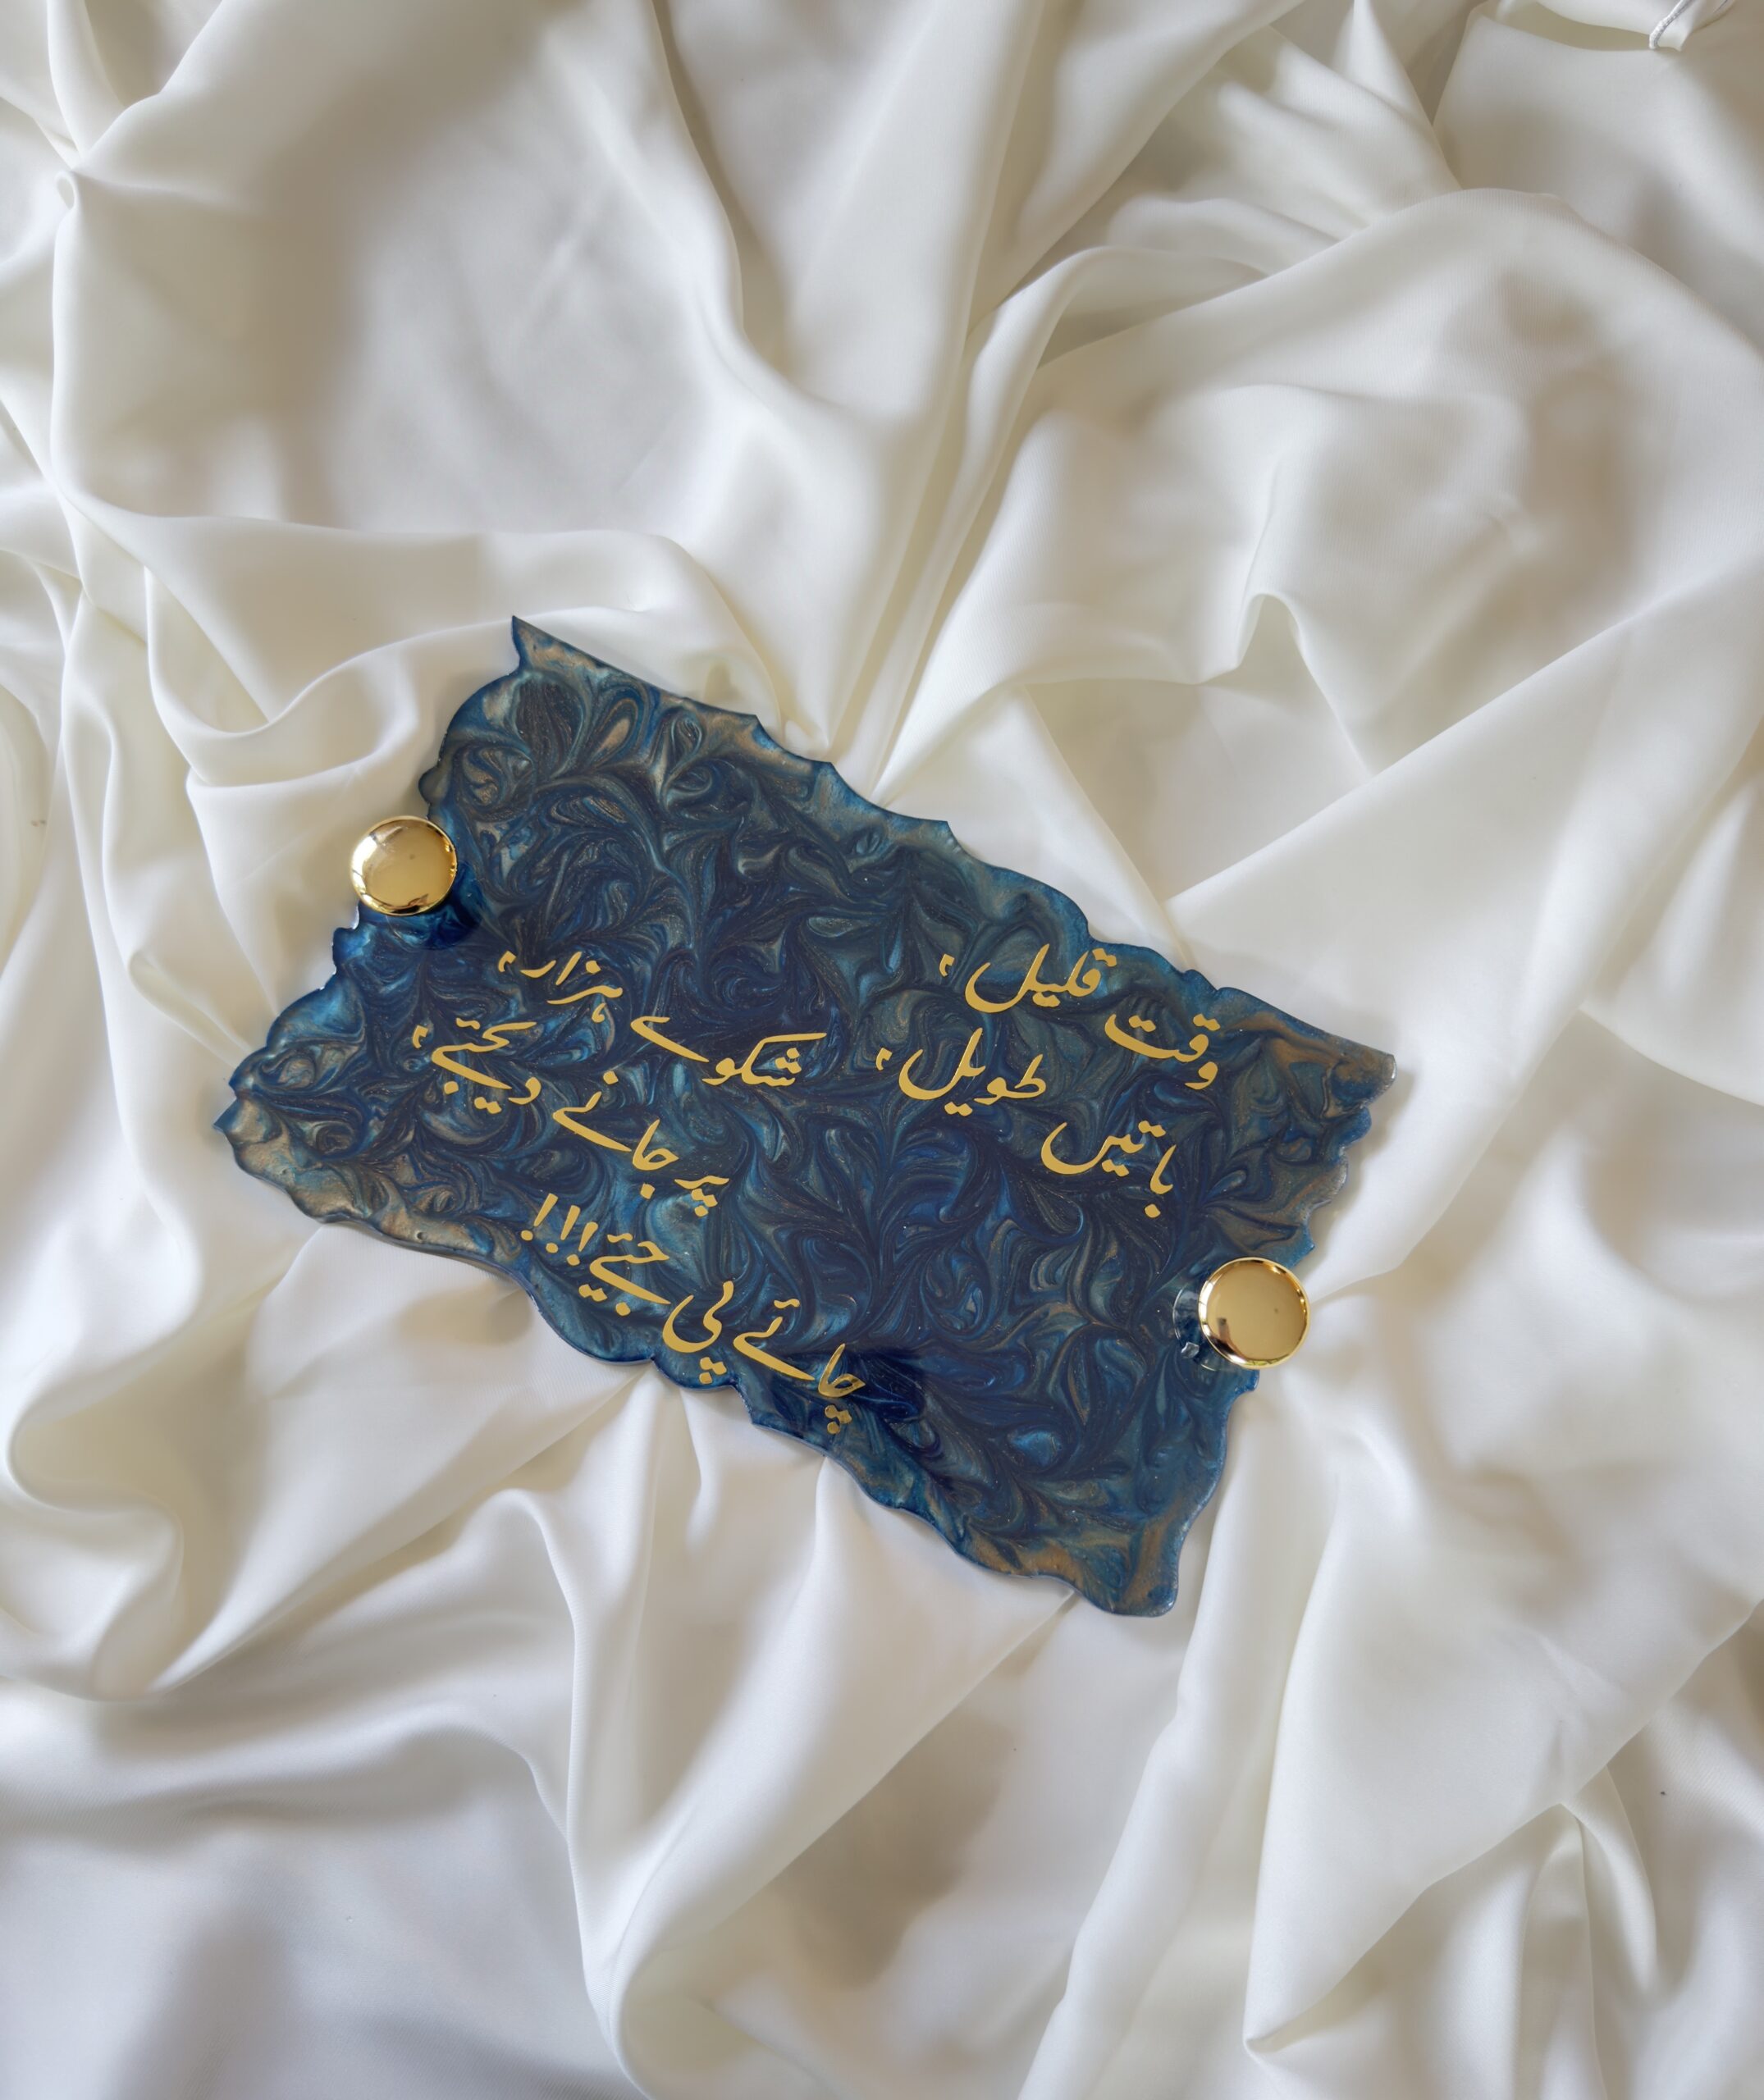 وقت قلیل، شکوے ہزار،
باتیں طویل، پر جانے دیجئے،
چائے پی جئے!!!